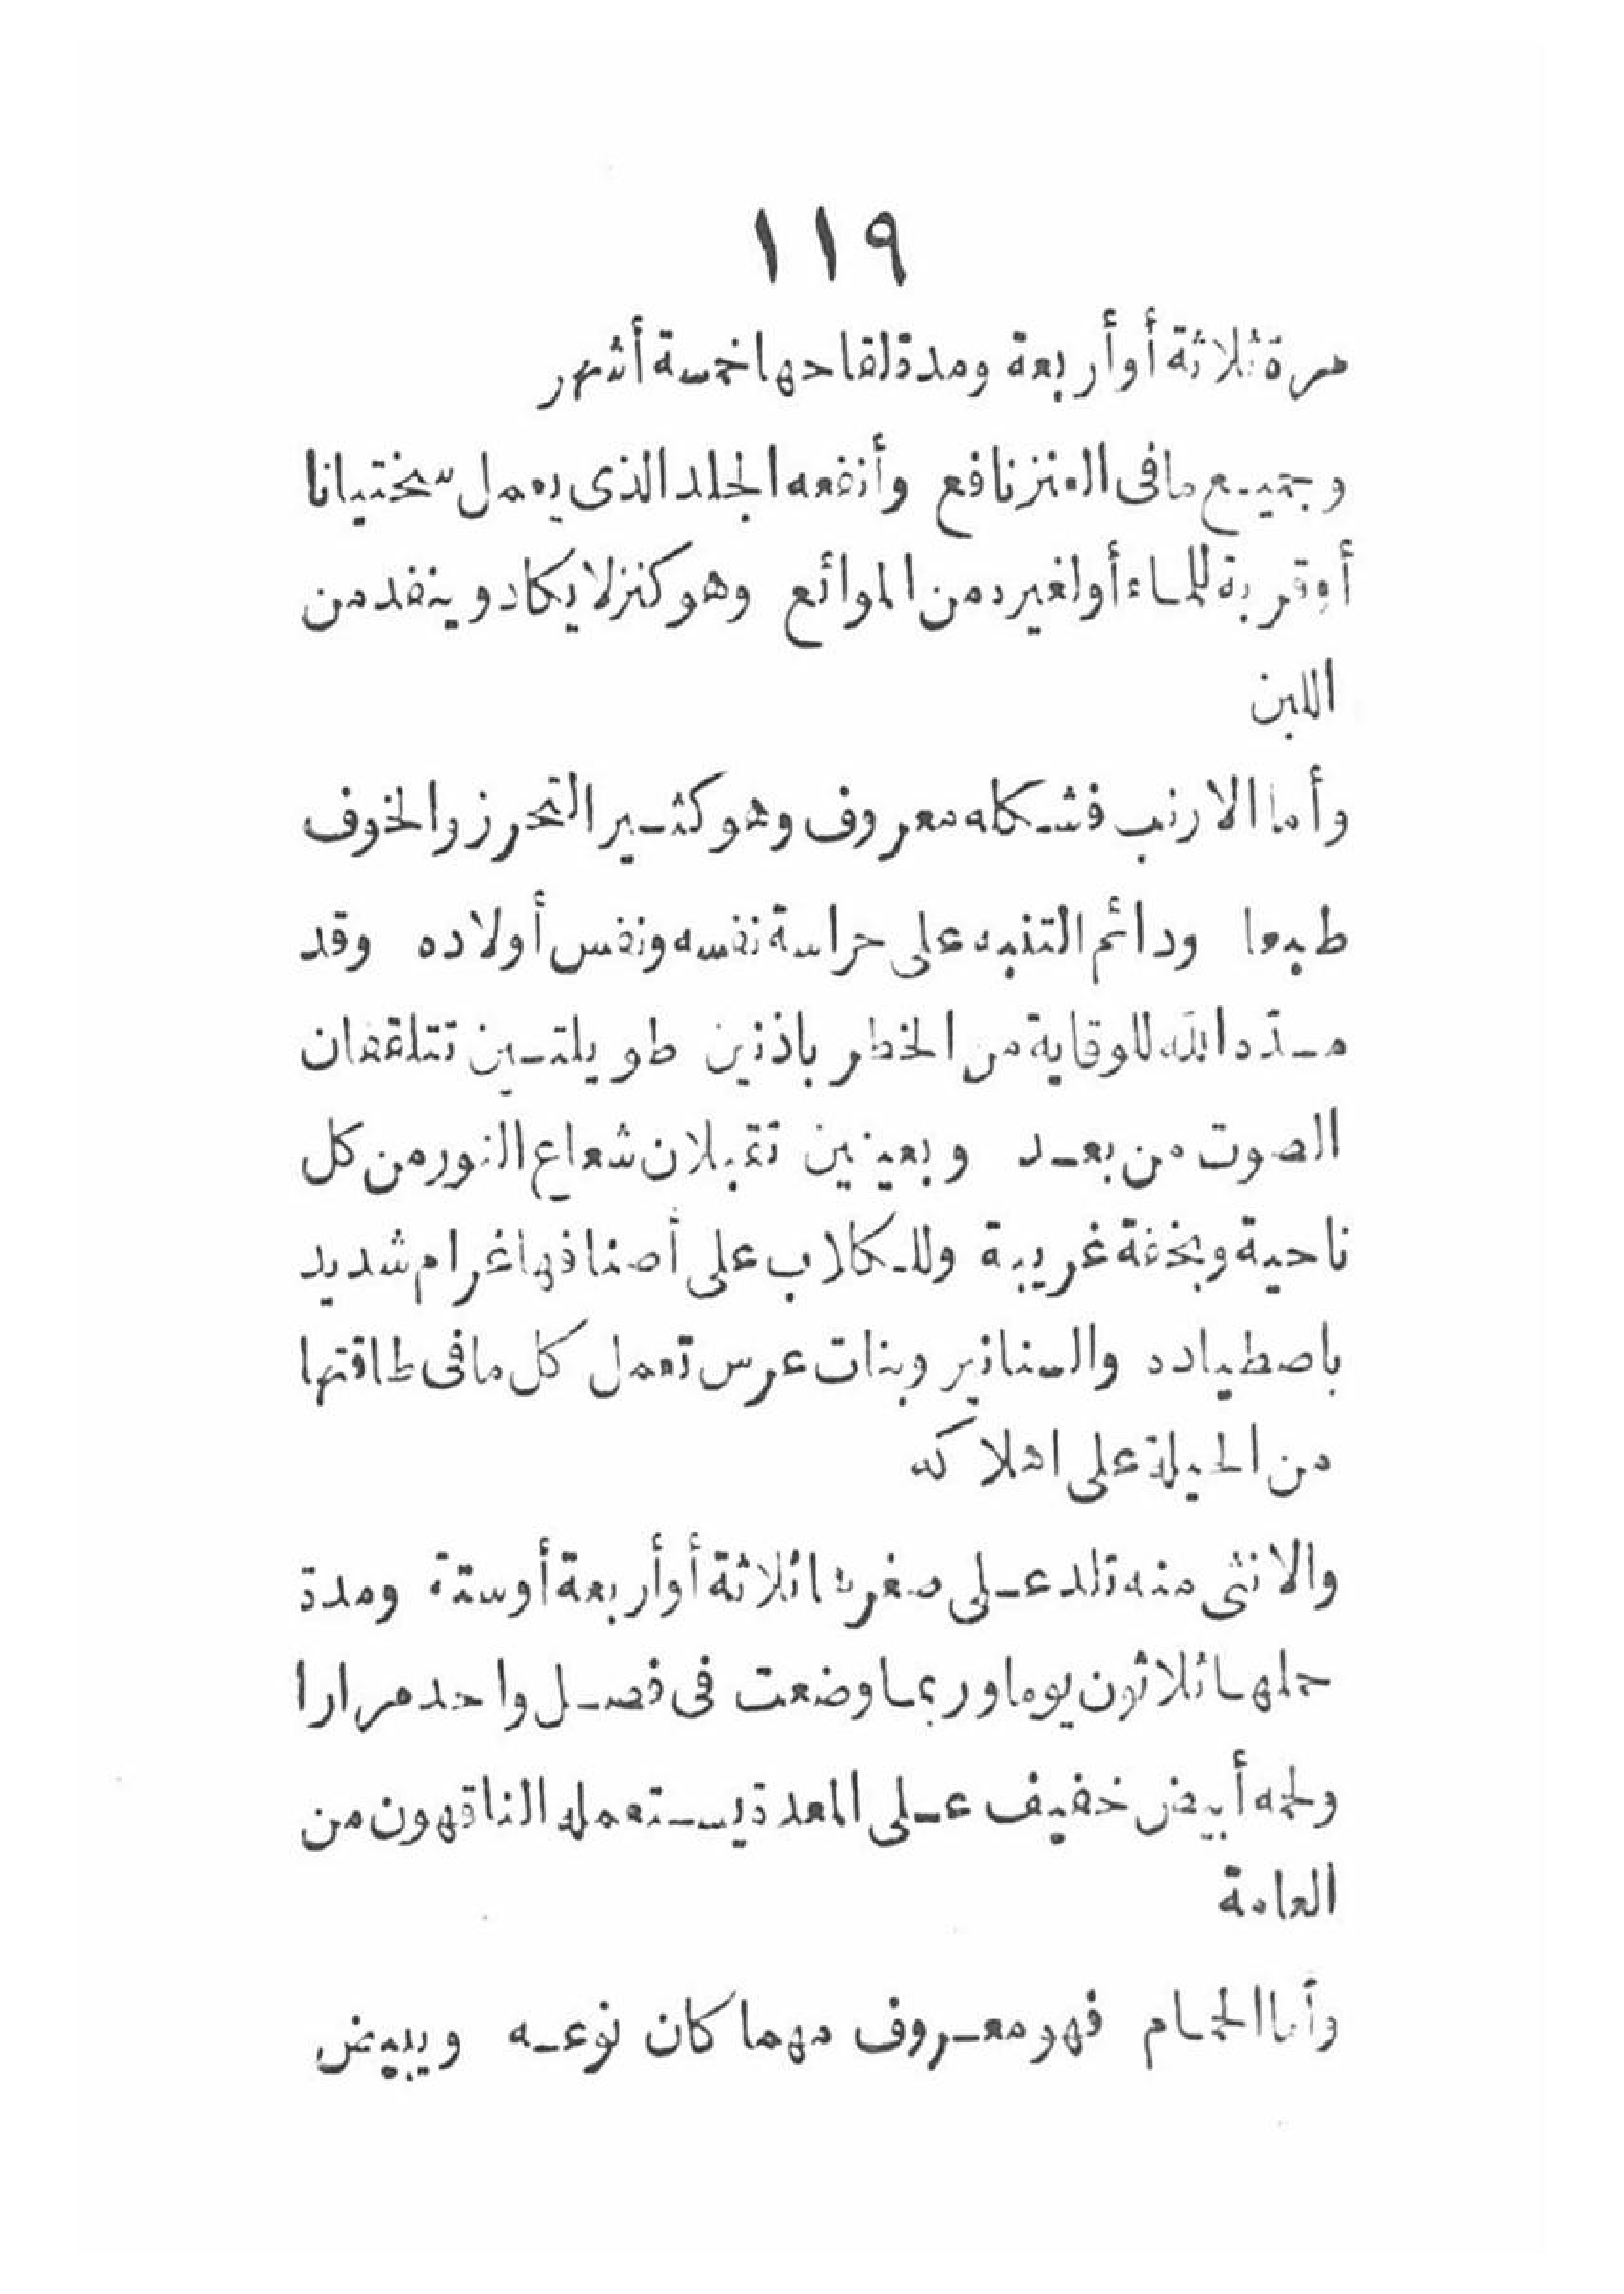 ١١٩
مرة ثلاثة أو أربعة ومدة لقاحها خمسة أشهر
وجميع ما فى العنز نافع وأنفعه الجلد الذى يعمل سختيانا
أو قربة للماء أو لغيره من الموائع وهو كنز لا يكاد وينفد من
اللبن
وأما الارنب فشكله معروف وهو كثير التحرز والخوف
طبعا ودائم التنبه على حراسة نفسه ونفس أولاده وقد
مدّه الله للوقاية من الخطر باذنين طويلتين تتلقفان
الصوت من بعد وبعينين تقبلان شعاع النور من كل
ناحية وبخفة غريبة وللكلاب على أصنافها غرام شديد
باصطياده والسنانير وبنات عرس تعمل كل ما فى طاقتها
من الحيلة على اهلاكه
والانثى منه تلد على صغرها ثلاثة أو أربعة أو ستة ومدة
حملها ثلاثون يوما وربما وضعت فى فصل واحد مرارا
ولحمه أبيض خفيف على المعدة يستعمله الناقهون من
العامة
وأما الحمام فهو معروف مهما كان نوعه ويبيض